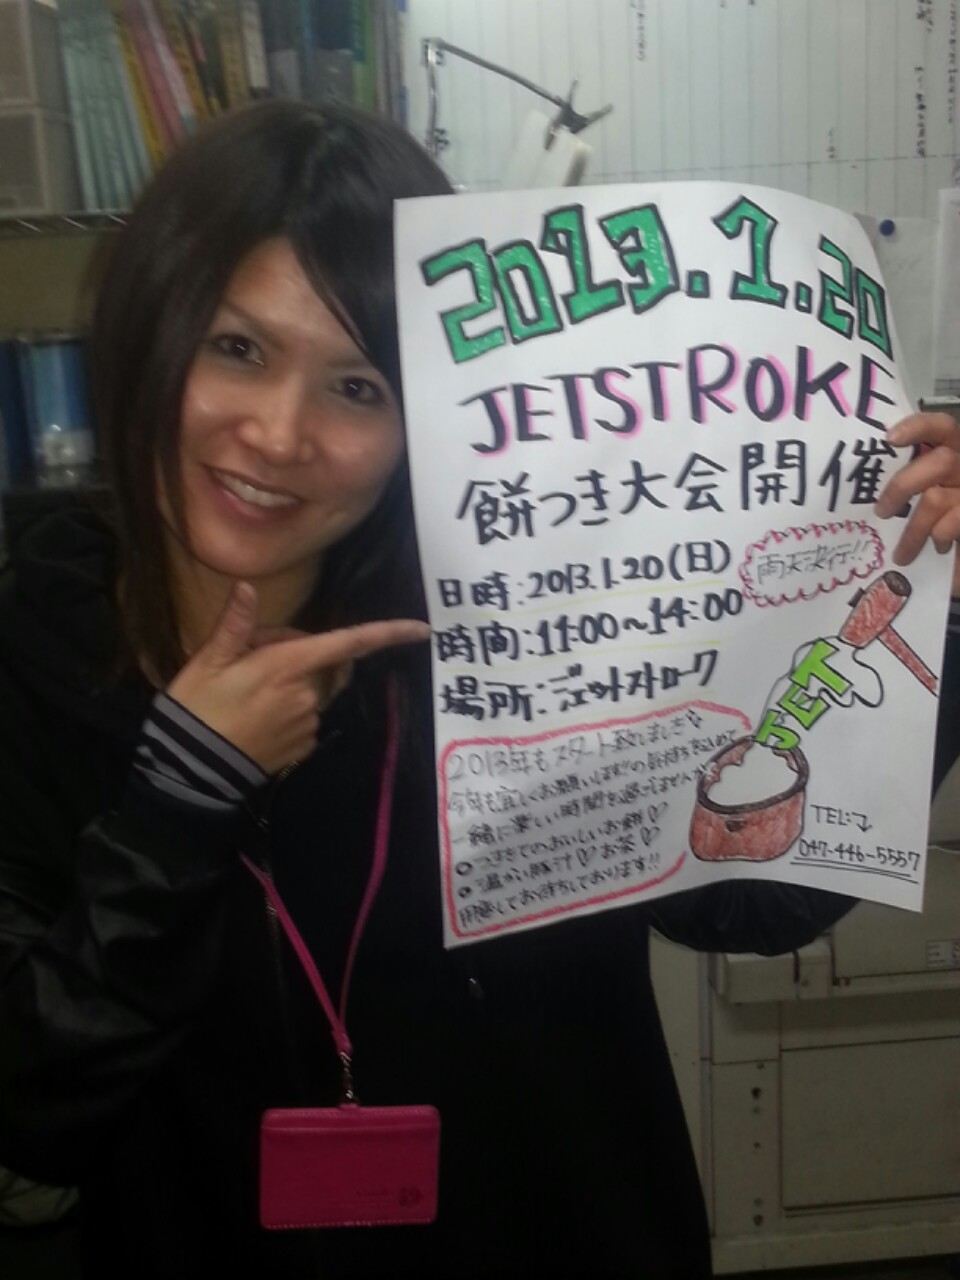 2013.1.20
JETSTROKE
餅つき大会開催
雨天決行!!
日時:2013.1.20(日)
時間:11:00~14:00
場所:ジェットストローク
JET
2013年もスタート致しました
今年も宜しくお願いしますの気持ちを込めて
一緒に楽しい時間を過ごしませんか
○つきたてのおいしいお餅♡
○温かい豚汁♡お茶♡
用意してお待ちしております!!
TEL:
047-446-5557